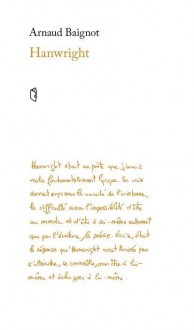 Arnaud Baignot
Hanwright
Hanwright était un poète que j'aurais
voulu fondamentalement lyrique. Sa voix
devait exprimer la vacuité de l'existence,
la difficulté sinon l'impossibilité d'être
au monde et d'être à soi-même autrement
que par l'écriture, la poésie. Écrire, était
la réponse qu'Hanwright avait trouvée pour
s'atteindre, se connaître, pour être à lui-
même et échapper à lui-même.